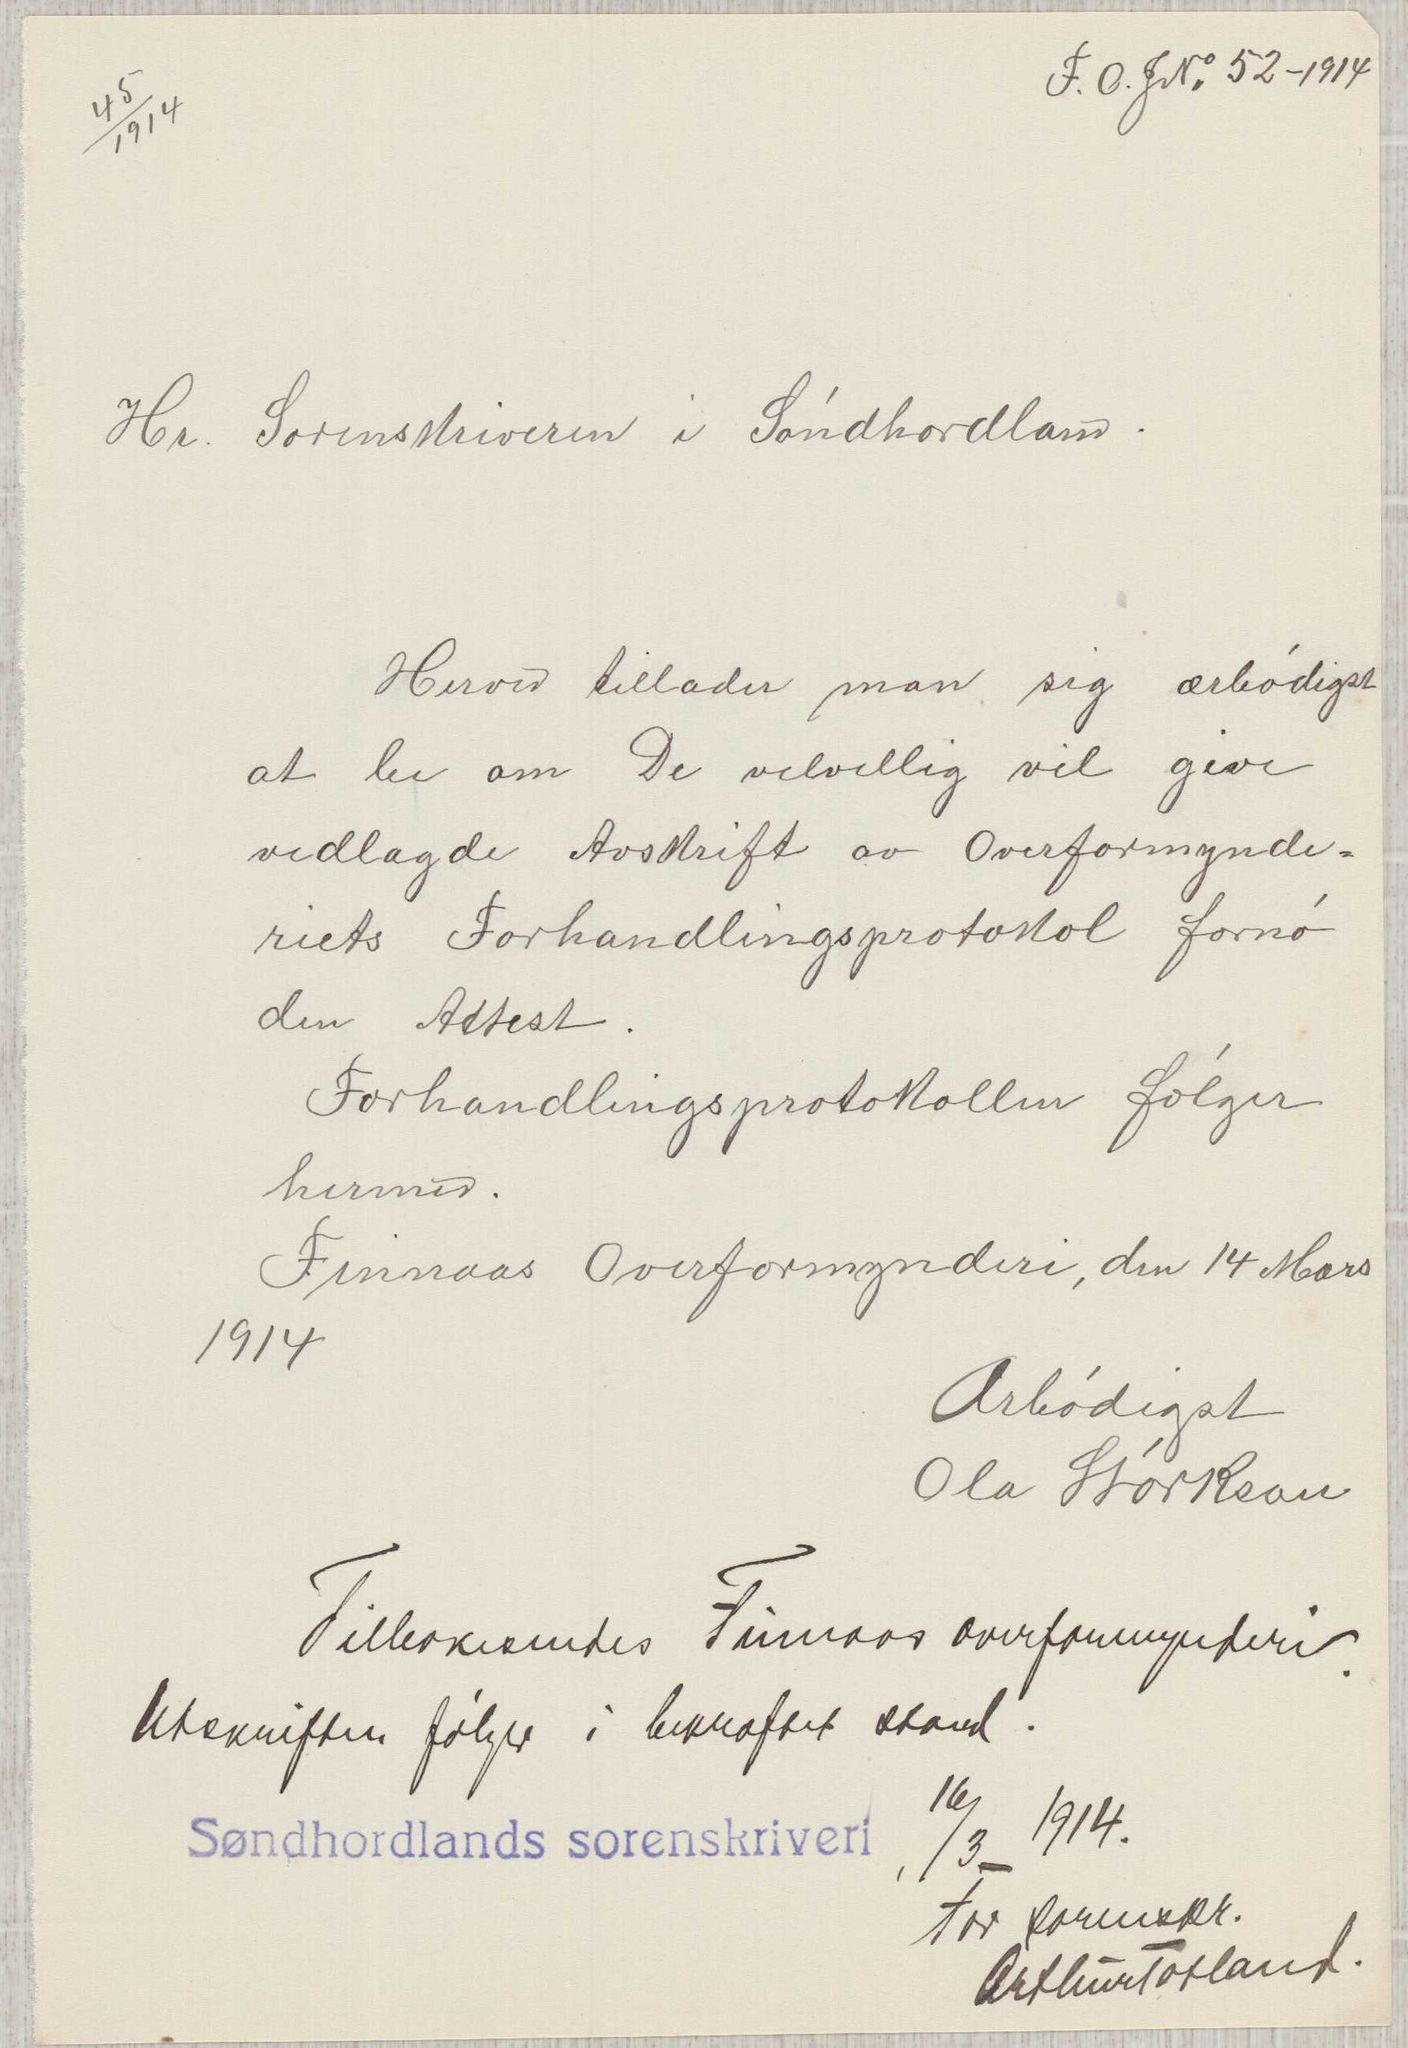 45/1914
F. O. J№. 52-1914
Hr. Sorenskriveren i Söndhordland.
Herved tillader man sig ærbódigst
at be om De velvillig vil give
vedlagde Avskrift av Overformynde=
riets Forhandlingsprotokol fornó
den Attest.
Forhandlingsprotokollen fólger
hermed.
Finnaas Overformynderi, den 14 Mars
1914
Ærbódigst
Ola Stórkson
Tilbakesendes Finnaas overformynderi.
Utskriften fólger i bekræftet stand.
Søndhordlands sorenskriveri, 16/3 1914.
For sorenskr.
Arthur Totland.